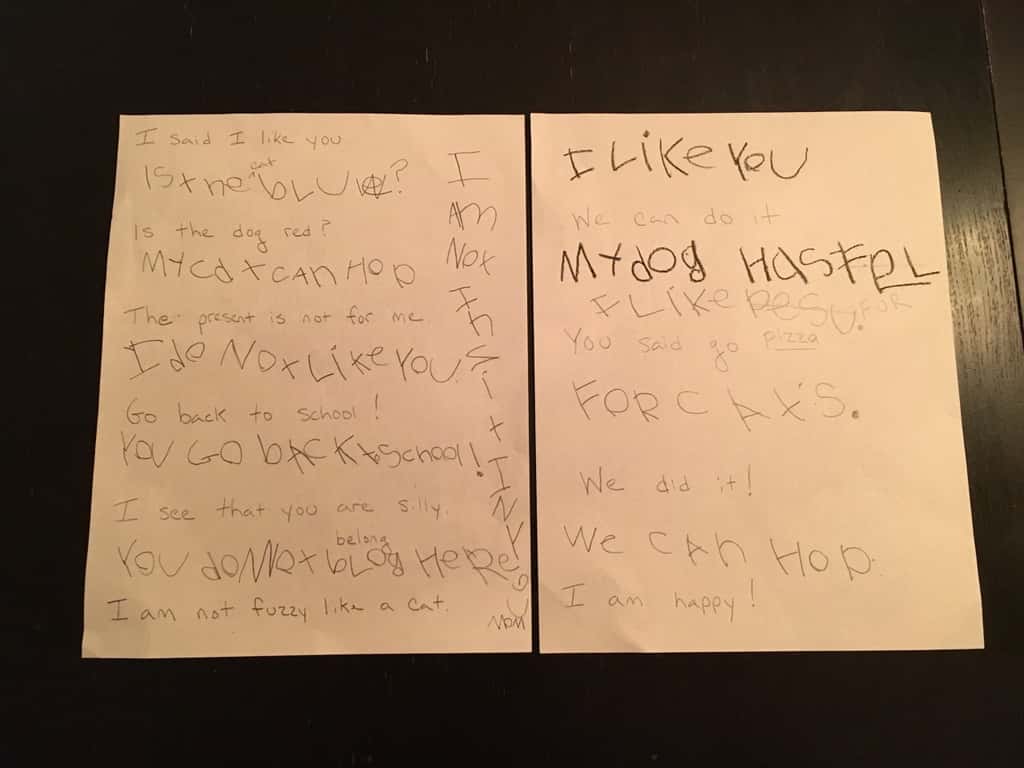 I said I like you
cat
Is the blu ?
Is the dog red?
MY CAt CAN HOP
The present is not for me.
I do Not LIKE YOU.
Go back to school!
YOU GO bACK to School!
I see that you are silly.
belong
YOU do Not bLOg HERE.
I am not fuzzy like a cat.
I
AM
Not
I
N
S
i
t
I
N
Y
O
U
I LiKe YoU
We can do it
MY dog HAS
I LIKE FOR
You said go pizza
FOR CAt'S.
We did it!
We CAN HOP.
I am happy!